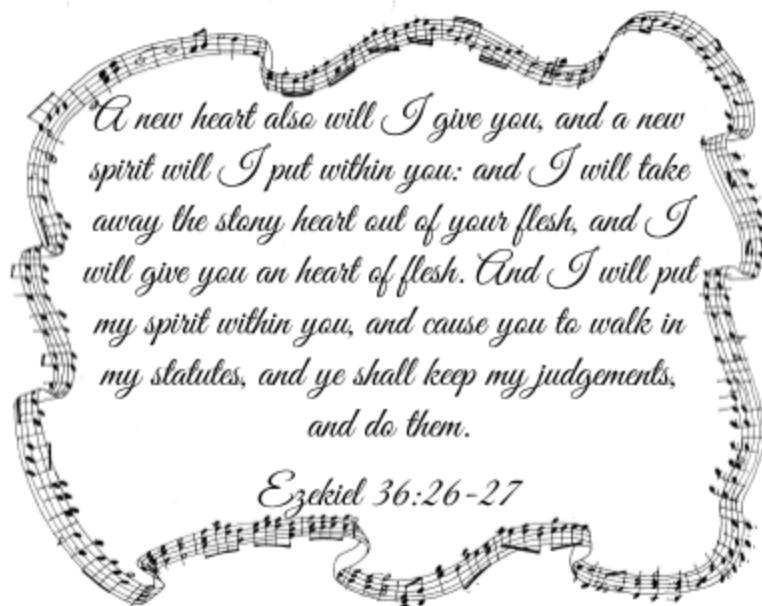 A new heart also will I give you, and a new
spirit will I put within you: and I will take
away the stony heart out of your flesh, and I
will give you an heart of flesh. And I will put
my spirit within you, and cause you to walk in
my statutes, and ye shall keep my judgements,
and do them.
Ezekiel 36:26-27